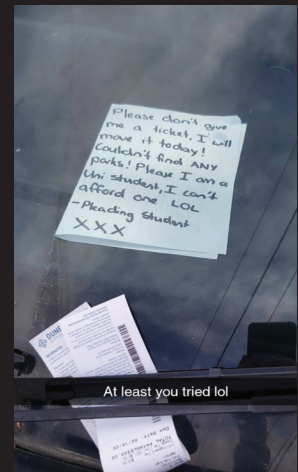 Please don't give
me a ticket, I will
move it today!
Couldn't find ANY
parks! Please I am a
Uni student, I can't
afford one LOL
-Pleading Student
XXX
DUNE
At least you tried lol
TOTAL